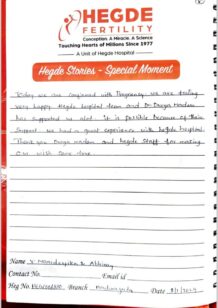 HEGDE
FERTILITY
Conception. A Miracle. A Science
Touching Hearts of Millions Since 1977
A Unit of Hegde Hospital
Hegde Stories - Special Moment
Today we are confirmed with Pregnancy. we are feeling
very happy Hegde hospital team and Dr. Durga Madam
has supported us alot it is possible because of their
Support we had a great experience with hegde hospital
Thank you Durga madam and hegde staff for making
our wish come true
Name
Contact No. Email id
Reg No. Branch Date